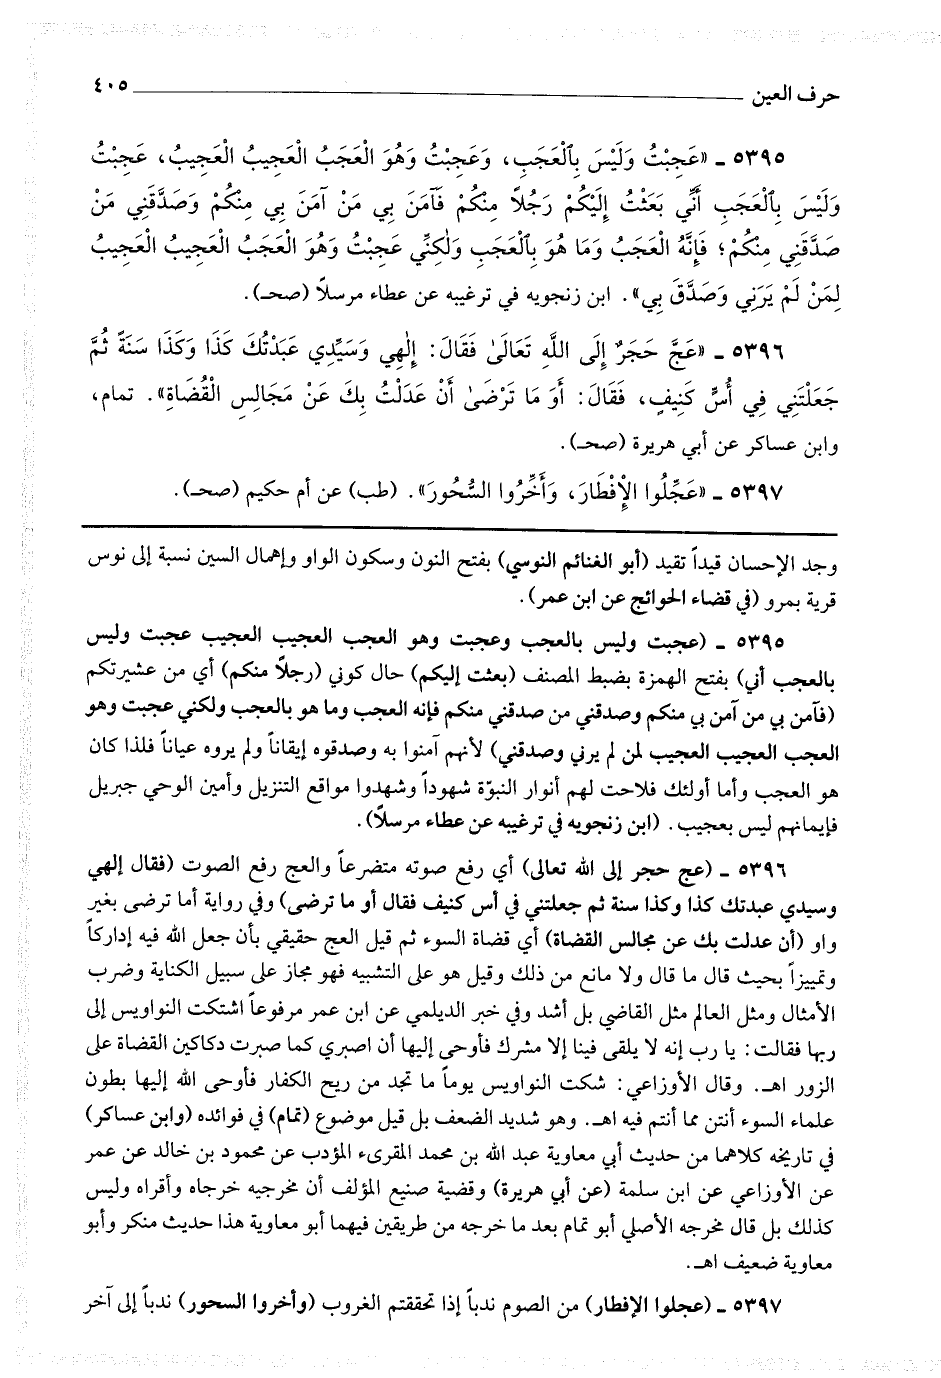 حرف العين ٤٠٥
٥٣٩٥ ـ «عَجِبْتُ وَلَيْسَ بِٱلْعَجَبِ، وَعَجِبْتُ وَهُوَ الْعَجَبُ الْعَجِيبُ الْعَجِيبُ، عَجِبْتُ
وَلَيْسَ بِٱلْعَجَبِ أَنِّي بَعَثْتُ إِلَيْكُمْ رَجُلاً مِنْكُمْ فَآمَنَ بِي مَنْ آمَنَ بِي مِنْكُمْ وَصَدَّقَنِي مَنْ
صَدَّقَنِي مِنْكُمْ؛ فَإِنَّهُ الْعَجَبُ وَمَا هُوَ بِٱلْعَجَبِ وَلٰكِنِّي عَجِبْتُ وَهُوَ الْعَجَبُ الْعَجِيبُ الْعَجِيبُ
لِمَنْ لَمْ يَرَنِي وَصَدَّقَ بِي». ابن زنجويه في ترغيبه عن عطاء مرسلاً (صحـ).
٥٣٩٦ ـ «عَجَّ حَجَرٌ إِلَى اللَّهِ تَعَالَىٰ فَقَالَ: إِلٰهِي وَسَيِّدِي عَبَدْتُكَ كَذَا وَكَذَا سَنَةً ثُمَّ
جَعَلْتَنِي فِي أُسِّ كَنِيفٍ، فَقَالَ: أَوَ مَا تَرْضَىٰ أَنْ عَدَلْتُ بِكَ عَنْ مَجَالِسِ الْقُضَاةِ». تمام،
وابن عساكر عن أبي هريرة (صحـ).
٥٣٩٧ ـ «عَجِّلُوا الْإِفْطَارَ، وَأَخِّرُوا السُّحُورَ». (طب) عن أم حكيم (صحـ).
وجد الإحسان قيداً تقيد (أبو الغنائم النوسي) بفتح النون وسكون الواو وإهمال السين نسبة إلى نوس
قرية بمرو (في قضاء الحوائج عن ابن عمر).
٥٣٩٥ ـ (عجبت وليس بالعجب وعجبت وهو العجب العجيب العجيب عجبت وليس
بالعجب أني) بفتح الهمزة بضبط المصنف (بعثت إليكم) حال كوني (رجلاً منكم) أي من عشيرتكم
(فآمن بي من آمن بي منكم وصدقني من صدقني منكم فإنه العجب وما هو بالعجب ولكني عجبت وهو
العجب العجيب العجيب لمن لم يرني وصدقني) لأنهم آمنوا به وصدقوه إيقاناً ولم يروه عياناً فلذا كان
هو العجب وأما أولئك فلاحت لهم أنوار النبوّة شهوداً وشهدوا مواقع التنزيل وأمين الوحي جبريل
فإيمانهم ليس بعجيب. (ابن زنجويه في ترغيبه عن عطاء مرسلاً).
٥٣٩٦ ـ (عج حجر إلى الله تعالى) أي رفع صوته متضرعاً والعج رفع الصوت (فقال إلهي
وسيدي عبدتك كذا وكذا سنة ثم جعلتني في أس كنيف فقال أو ما ترضى) وفي رواية أما ترضى بغير
واو (أن عدلت بك عن مجالس القضاة) أي قضاة السوء ثم قيل العج حقيقي بأن جعل الله فيه إداركاً
وتمييزاً بحيث قال ما قال ولا مانع من ذلك وقيل هو على التشبيه فهو مجاز على سبيل الكناية وضرب
الأمثال ومثل العالم مثل القاضي بل أشد وفي خبر الديلمي عن ابن عمر مرفوعاً اشتكت النواويس إلى
ربها فقالت: يا رب إنه لا يلقى فينا إلا مشرك فأوحى إليها أن اصبري كما صبرت دكاكين القضاة على
الزور اهـ. وقال الأوزاعي: شكت النواويس يوماً ما تجد من ريح الكفار فأوحى الله إليها بطون
علماء السوء أنتن مما أنتم فيه اهـ. وهو شديد الضعف بل قيل موضوع (تمام) في فوائده (وابن عساكر)
في تاريخه كلاهما من حديث أبي معاوية عبد الله بن محمد المقرىء المؤدب عن محمود بن خالد عن عمر
عن الأوزاعي عن ابن سلمة (عن أبي هريرة) وقضية صنيع المؤلف أن مخرجيه خرجاه وأقراه وليس
كذلك بل قال مخرجه الأصلي أبو تمام بعد ما خرجه من طريقين فيهما أبو معاوية هذا حديث منكر وأبو
معاوية ضعيف اهـ.
٥٣٩٧ ـ (عجلوا الإفطار) من الصوم ندباً إذا تحققتم الغروب (وأخروا السحور) ندباً إلى آخر